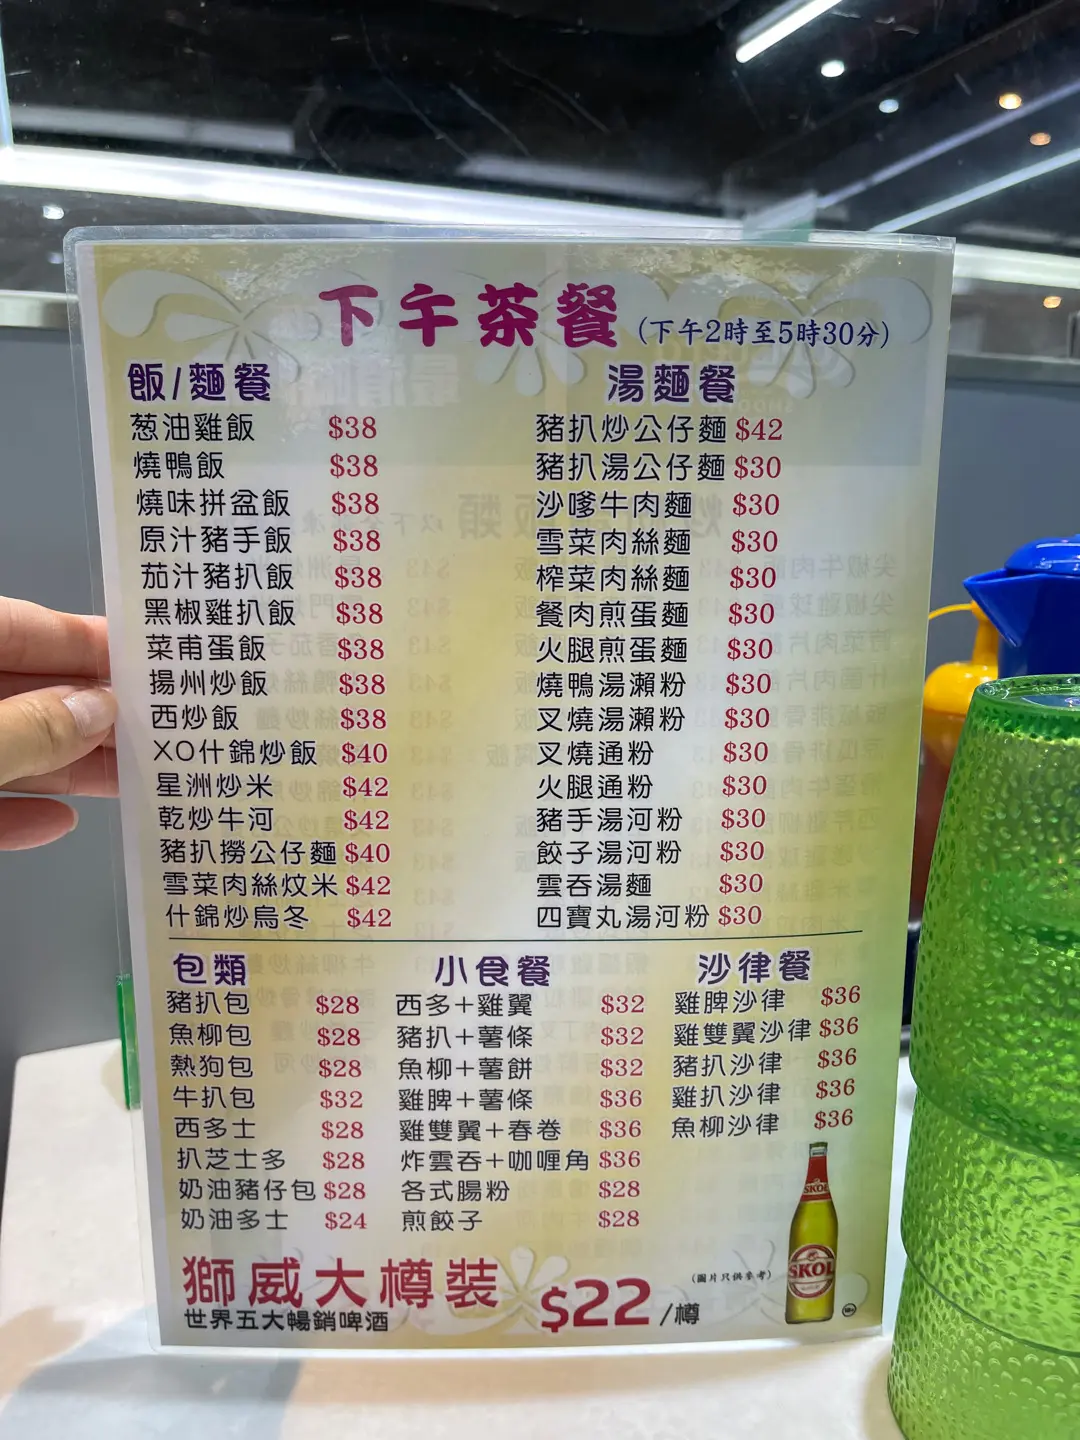 下午茶餐 (下午2時至5時30分)
飯/麵餐
葱油雞飯 $38
燒鴨飯 $38
燒味拼盆飯 $38
原汁豬手飯 $38
茄汁豬扒飯 $38
黑椒雞扒飯 $38
菜甫蛋飯 $38
揚州炒飯 $38
西炒飯 $38
XO什錦炒飯 $40
星洲炒米 $42
乾炒牛河 $42
豬扒撈公仔麵 $40
雪菜肉絲炆米 $42
什錦炒烏冬 $42
湯麵餐
豬扒炒公仔麵 $42
豬扒湯公仔麵 $30
沙嗲牛肉麵 $30
雪菜肉絲麵 $30
榨菜肉絲麵 $30
餐肉煎蛋麵 $30
火腿煎蛋麵 $30
燒鴨湯瀨粉 $30
叉燒湯瀨粉 $30
叉燒通粉 $30
火腿通粉 $30
豬手湯河粉 $30
餃子湯河粉 $30
雲吞湯麵 $30
四寶丸湯河粉 $30
包類
豬扒包 $28
魚柳包 $28
熱狗包 $28
牛扒包 $32
西多士 $28
扒芝士多 $28
奶油豬仔包 $28
奶油多士 $24
小食餐
西多+雞翼 $32
豬扒+薯條 $32
魚柳+薯餅 $32
雞脾+薯條 $36
雞雙翼+春卷 $36
炸雲吞+咖喱角 $36
各式腸粉 $28
煎餃子 $28
沙律餐
雞脾沙律 $36
雞雙翼沙律 $36
豬扒沙律 $36
雞扒沙律 $36
魚柳沙律 $36
獅威大樽裝
世界五大暢銷啤酒
$22/樽
(圖片只供參考)
SKOL
SKOL